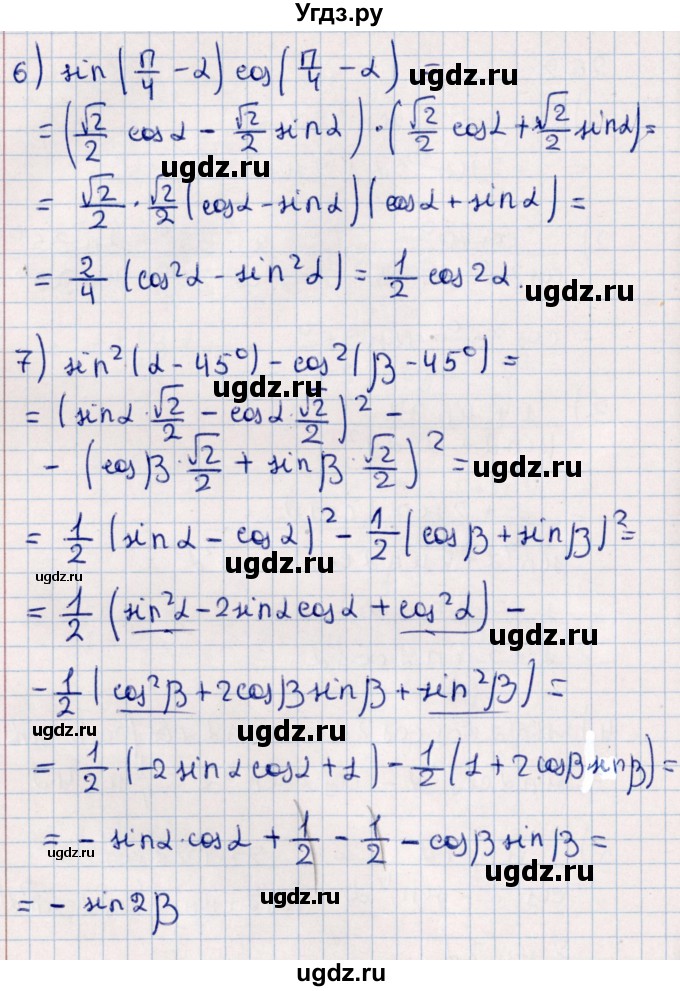 Угдз.ру
6) sin(π/4 - α) cos(π/4 - α) =
= (√2/2 cosα - √2/2 sinα) · (√2/2 cosα + √2/2 sinα) =
ugdz.ru ugdz.ru
= √2/2 · √2/2 (cosα - sinα)(cosα + sinα) =
= 2/4 (cos²α - sin²α) = 1/2 cos2α
ugdz.ru
7) sin²(α - 45°) - cos²(β - 45°) =
ugdz.ru
= (sinα · √2/2 - cosα · √2/2)² -
- (cosβ · √2/2 + sinβ · √2/2)² =
ugdz.ru
= 1/2 (sinα - cosα)² - 1/2 (cosβ + sinβ)² =
ugdz.ru ugdz.ru
= 1/2 (sin²α - 2sinαcosα + cos²α) -
ugdz.ru
- 1/2 (cos²β + 2cosβsinβ + sin²β) =
ugdz.ru ugdz.ru
= 1/2 · (-2sinαcosα + 1) - 1/2 (1 + 2cosβsinβ) =
= - sinα·cosα + 1/2 - 1/2 - cosβsinβ =
ugdz.ru ugdz.ru
= - sin2β
ugdz.ru
ugdz.ru